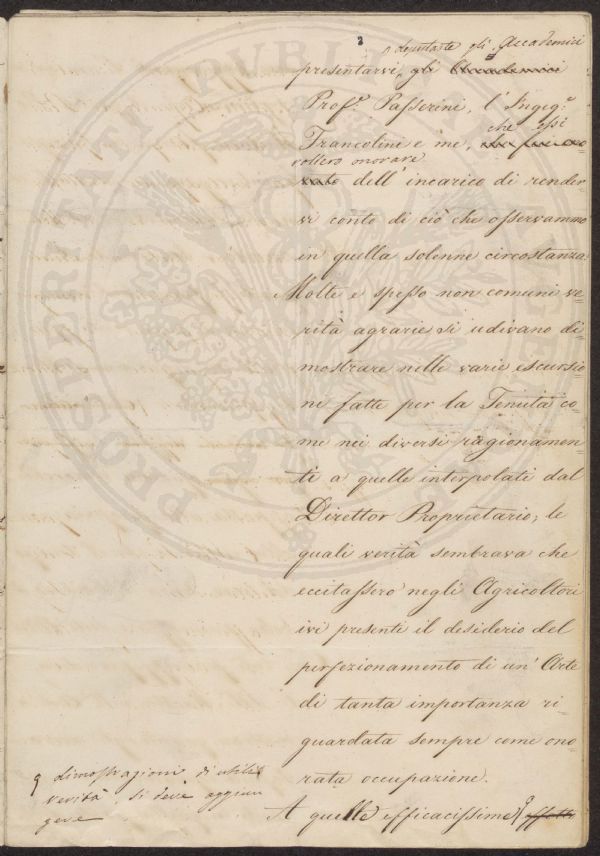 2
deputaste gli Accademici
presentarvi, gli Accademici
Prof.e Passerini, l'Ingeg.e
Francolini e me, che essi
vollero onorare
dell'incarico di render=
vi conto di ciò che osservammo
in quella solenne circostanza.
Molte e spesso non comuni ve=
rità agrarie si udivano di=
mostrare nelle varie escursio=
ni fatte per la Tenuta co=
me nei diversi ragionamen=
ti a quelle interpolati dal
Direttor Proprietario, le
quali verità sembrava che
eccitassero negli Agricoltori
ivi presenti il desiderio del
perfezionamento di un'Arte
di tanta importanza ri=
guardata sempre come ono=
rata occupazione.
A quelle efficacissime
dimostrazioni di utili
verità, si deve aggiun
gere
PROSPERITATI PUBLICAE